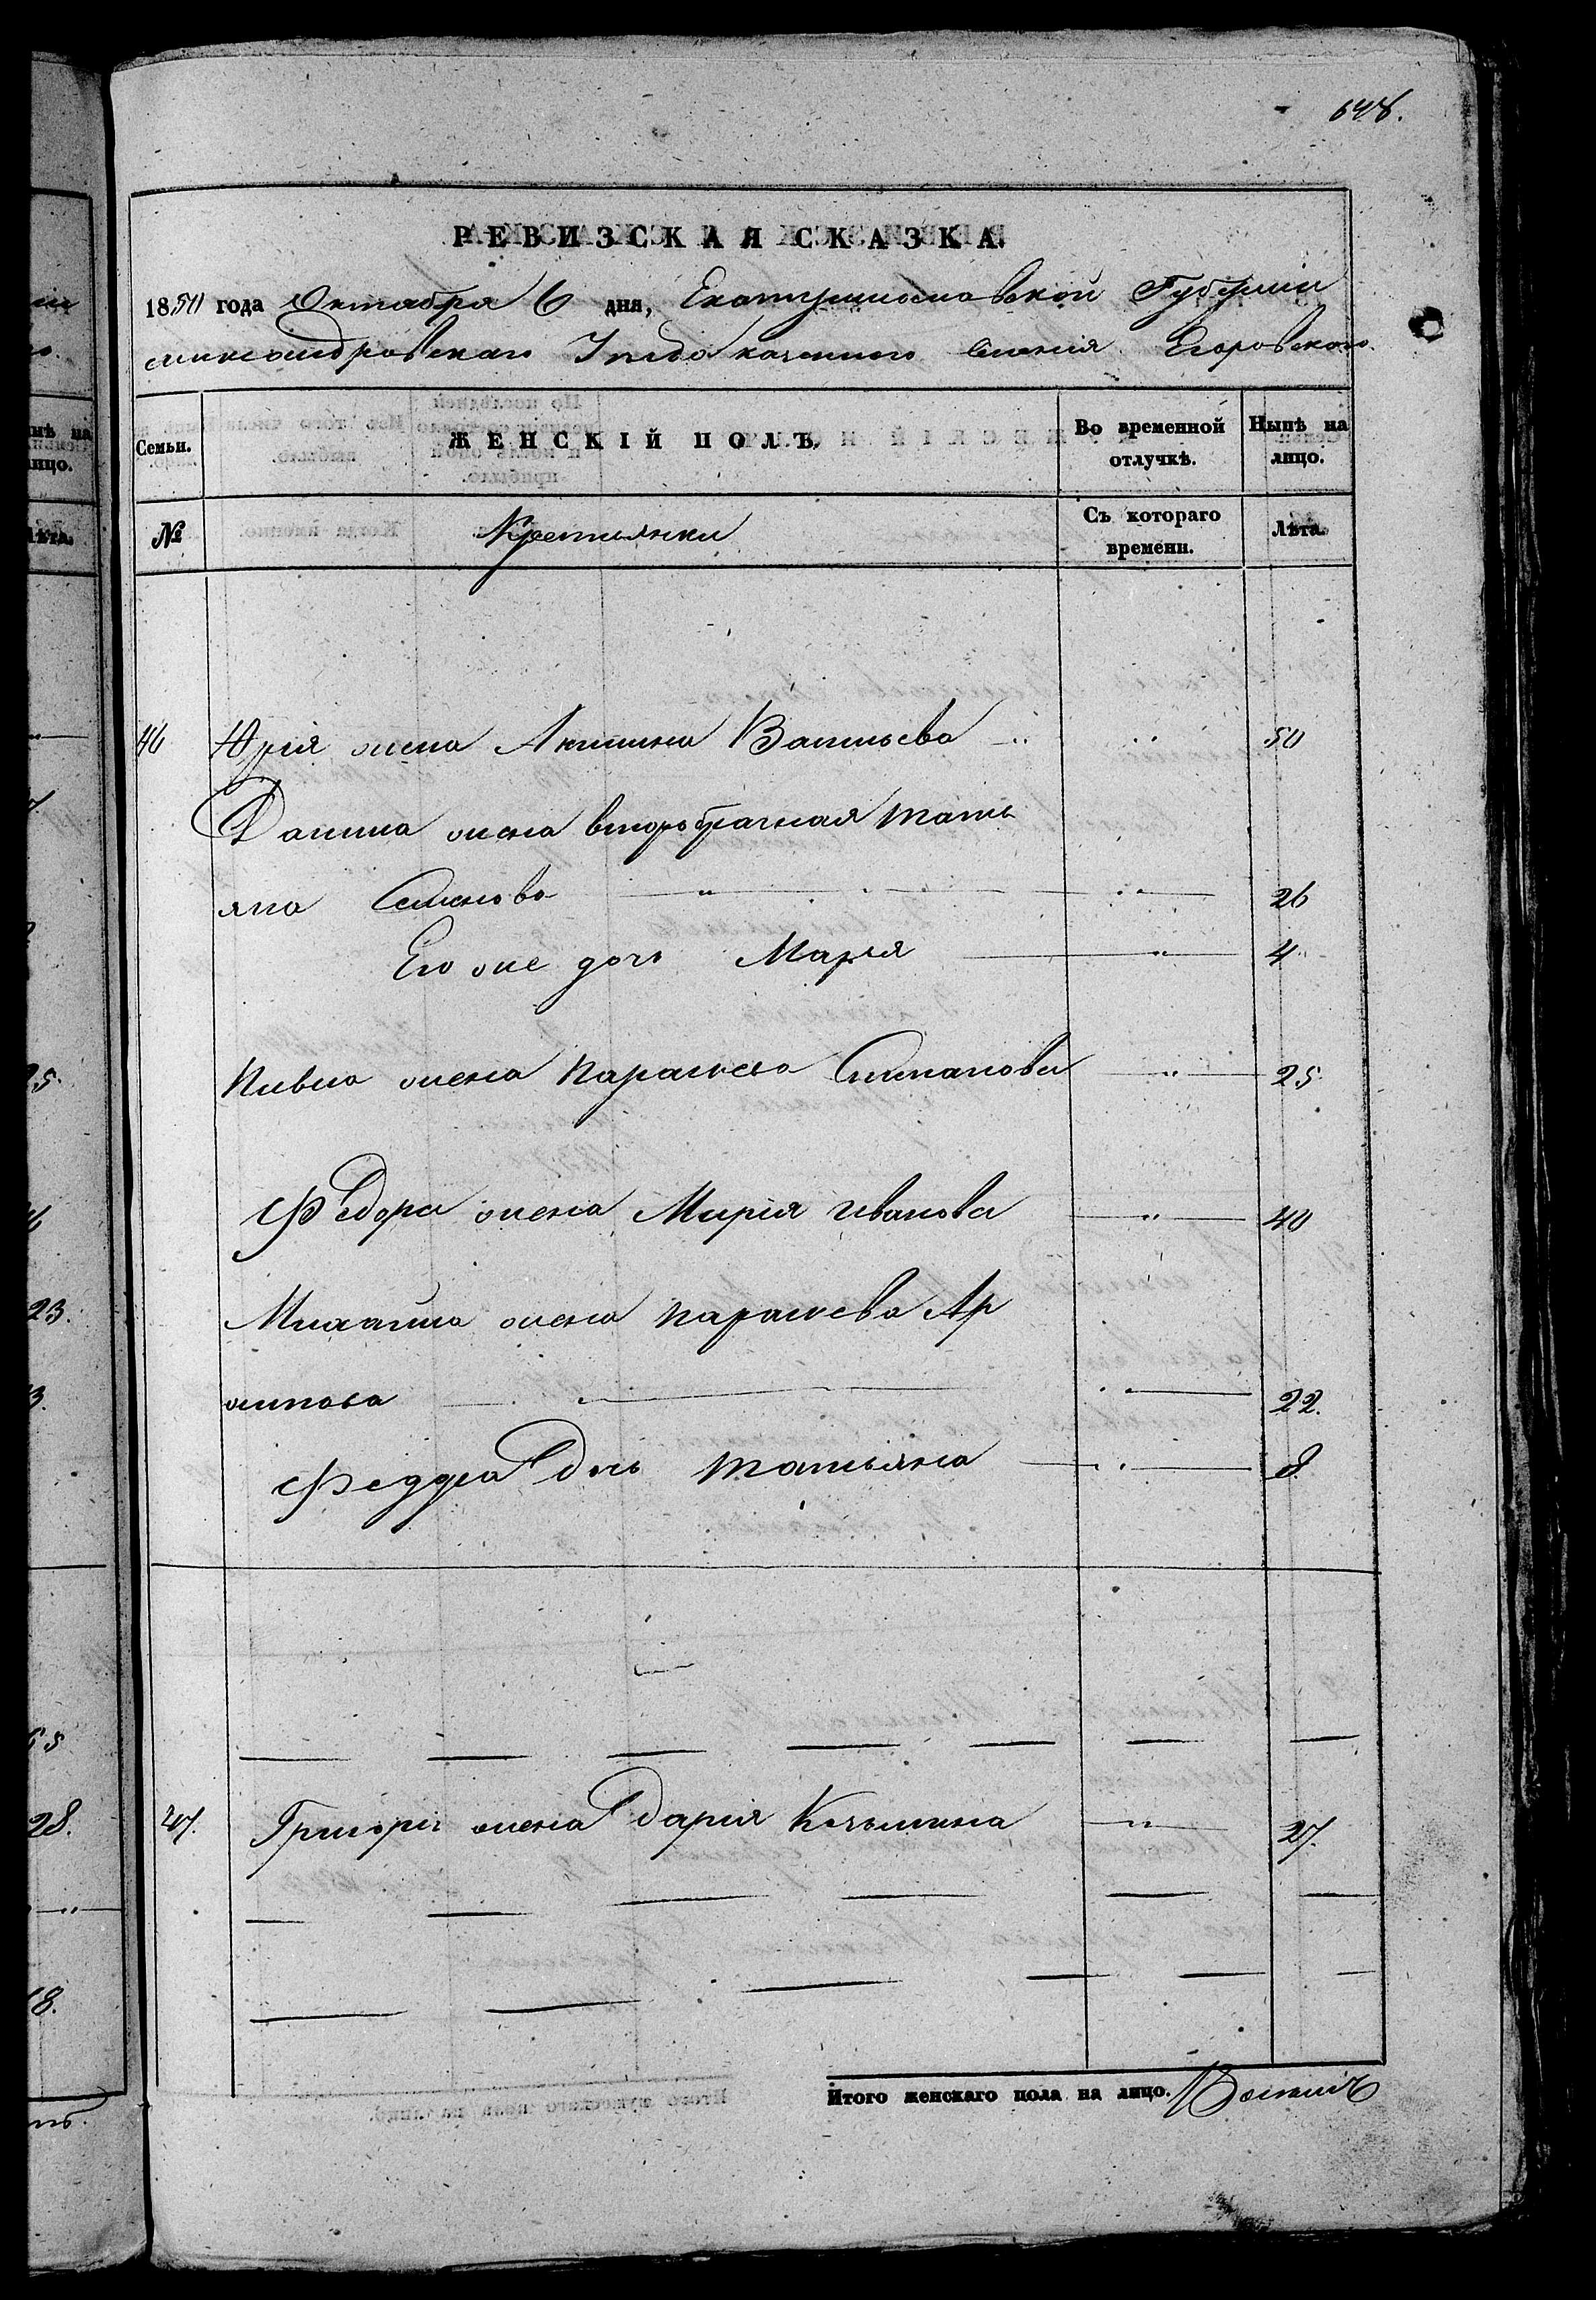 648.
РЕВИЗСКАЯ СКАЗКА.
1850 года Октября 6 дня, Екатеринославской Губернии
Александровского Уезда казенного селения Егоровского
Семьи. ЖЕНСКІЙ ПОЛЪ. Во временной отлучкѣ. Нынѣ на лицо.
№ Крестьянки Съ котораго времени. Лѣта.
46 Юрія жена Акилина Васильева 50
Данила жена второбрачная Тать
яна Семенова 26
Его же дочь Марья 4
Павла жена Параскева Степанова 25
Федора жена Марія Иванова 40
Михаила жена Параскева Ар
хипова 22.
Федора дочь Татьяна 8.
47. Григорія жена Дарія Козьмина 27.
Итого женскаго пола на лицо. Восемь